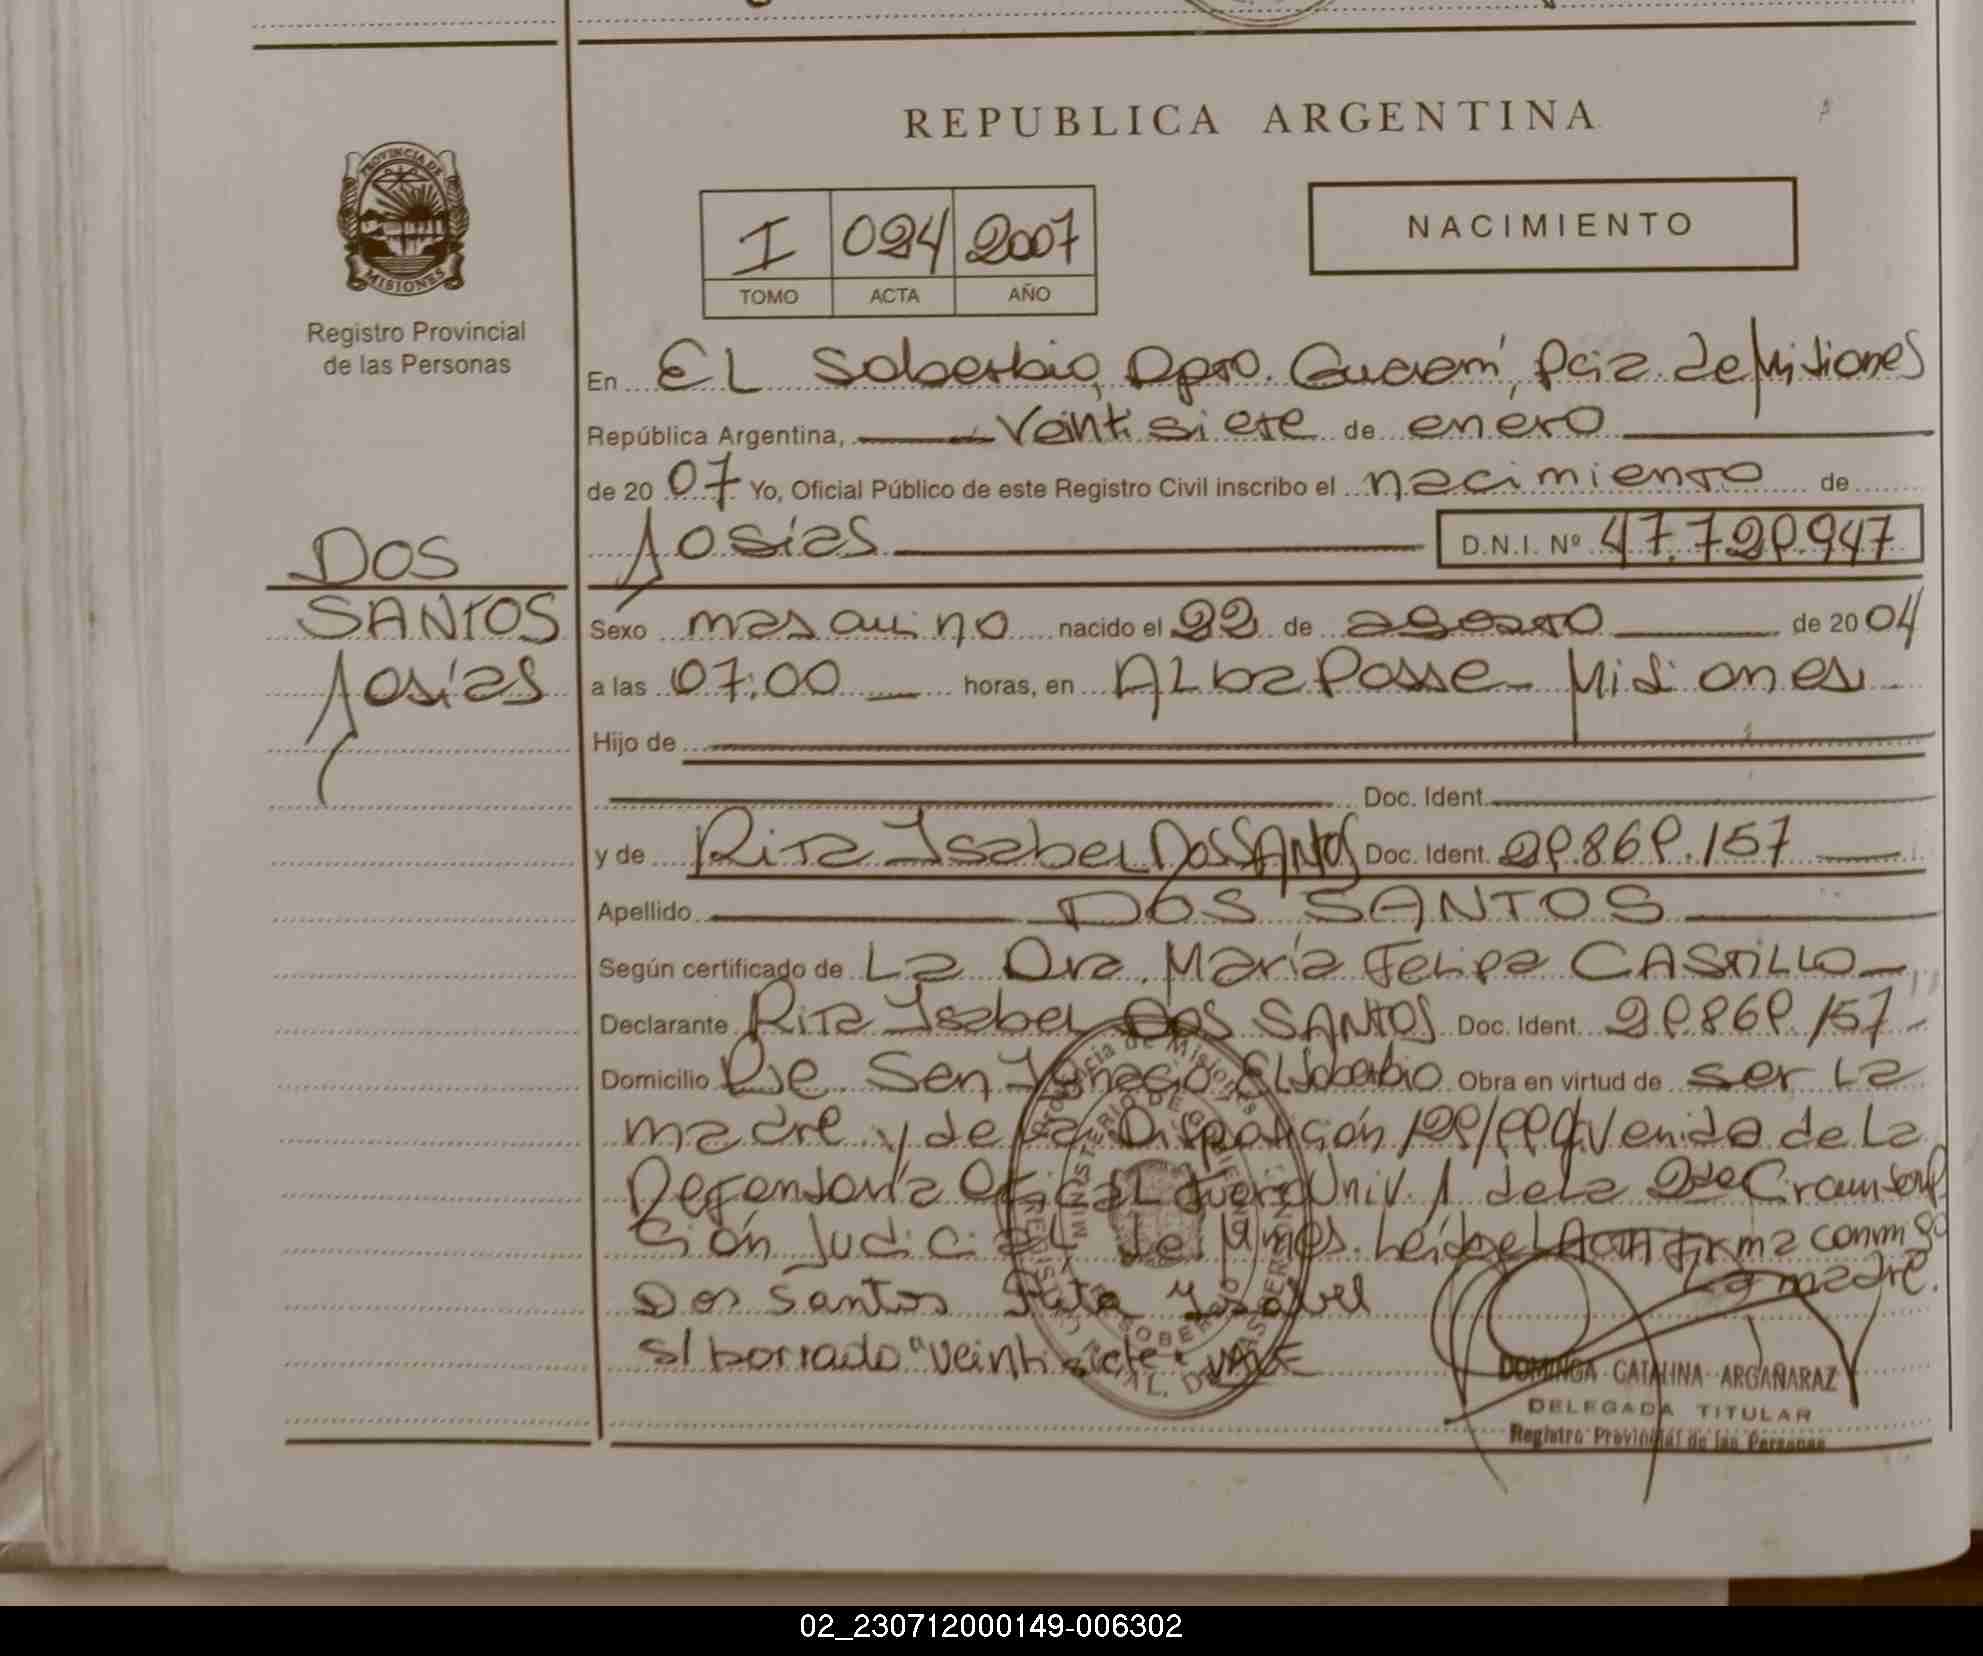 REPUBLICA ARGENTINA
PROVINCIA DE MISIONES
Registro Provincial
de las Personas
I 024 2007
TOMO ACTA AÑO
NACIMIENTO
En EL Soberbio, Dpto. Guaraní, Pcia. de Misiones
República Argentina, veintisiete de enero
de 20 07 Yo, Oficial Público de este Registro Civil inscribo el nacimiento de
Josías D.N.I. Nº 47.729.947
DOS
SANTOS
Josías
Sexo masculino nacido el 22 de agosto de 20 04
a las 07:00 horas, en ALba Posse - Misiones
Hijo de
Doc. Ident.
y de Rita Isabel DOS SANTOS Doc. Ident. 29.869.157
Apellido DOS SANTOS
Según certificado de La Dra. María Felipa CASTILLO
Declarante Rita Isabel DOS SANTOS Doc. Ident. 29.869.157
Domicilio Pje San Ignacio EL Soberbio Obra en virtud de ser La
madre y de La Disposición 199/99 venida de La
Defensoría Oficial fuero Univ. 1 de La 2da Circunscrip
ción Judicial de Mnes. Leída el Acta firma conmigo
La madre.
Dos Santos Rita Ysabel
S/ borrado "veintisiete" VALE
DOMINGA CATALINA ARGAÑARAZ
DELEGADA TITULAR
Registro Provincial de las Personas
02_230712000149-006302